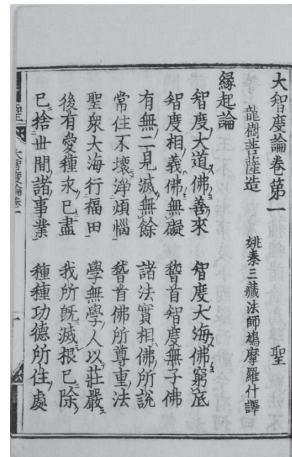 大智度論卷第一　聖
龍樹菩薩造　姚秦三藏法師鳩摩羅什譯
緣起論
智度大道佛善來　智度大海佛窮底
智度相義佛無礙　稽首智度無子佛
有無二見滅無餘　諸法實相佛所說
常住不壞淨煩惱　稽首佛所尊重法
聖衆大海行福田　學無學人以莊嚴
後有愛種永已盡　我所既滅根已除
已捨世間諸事業　種種功德所住處
大智度論卷一